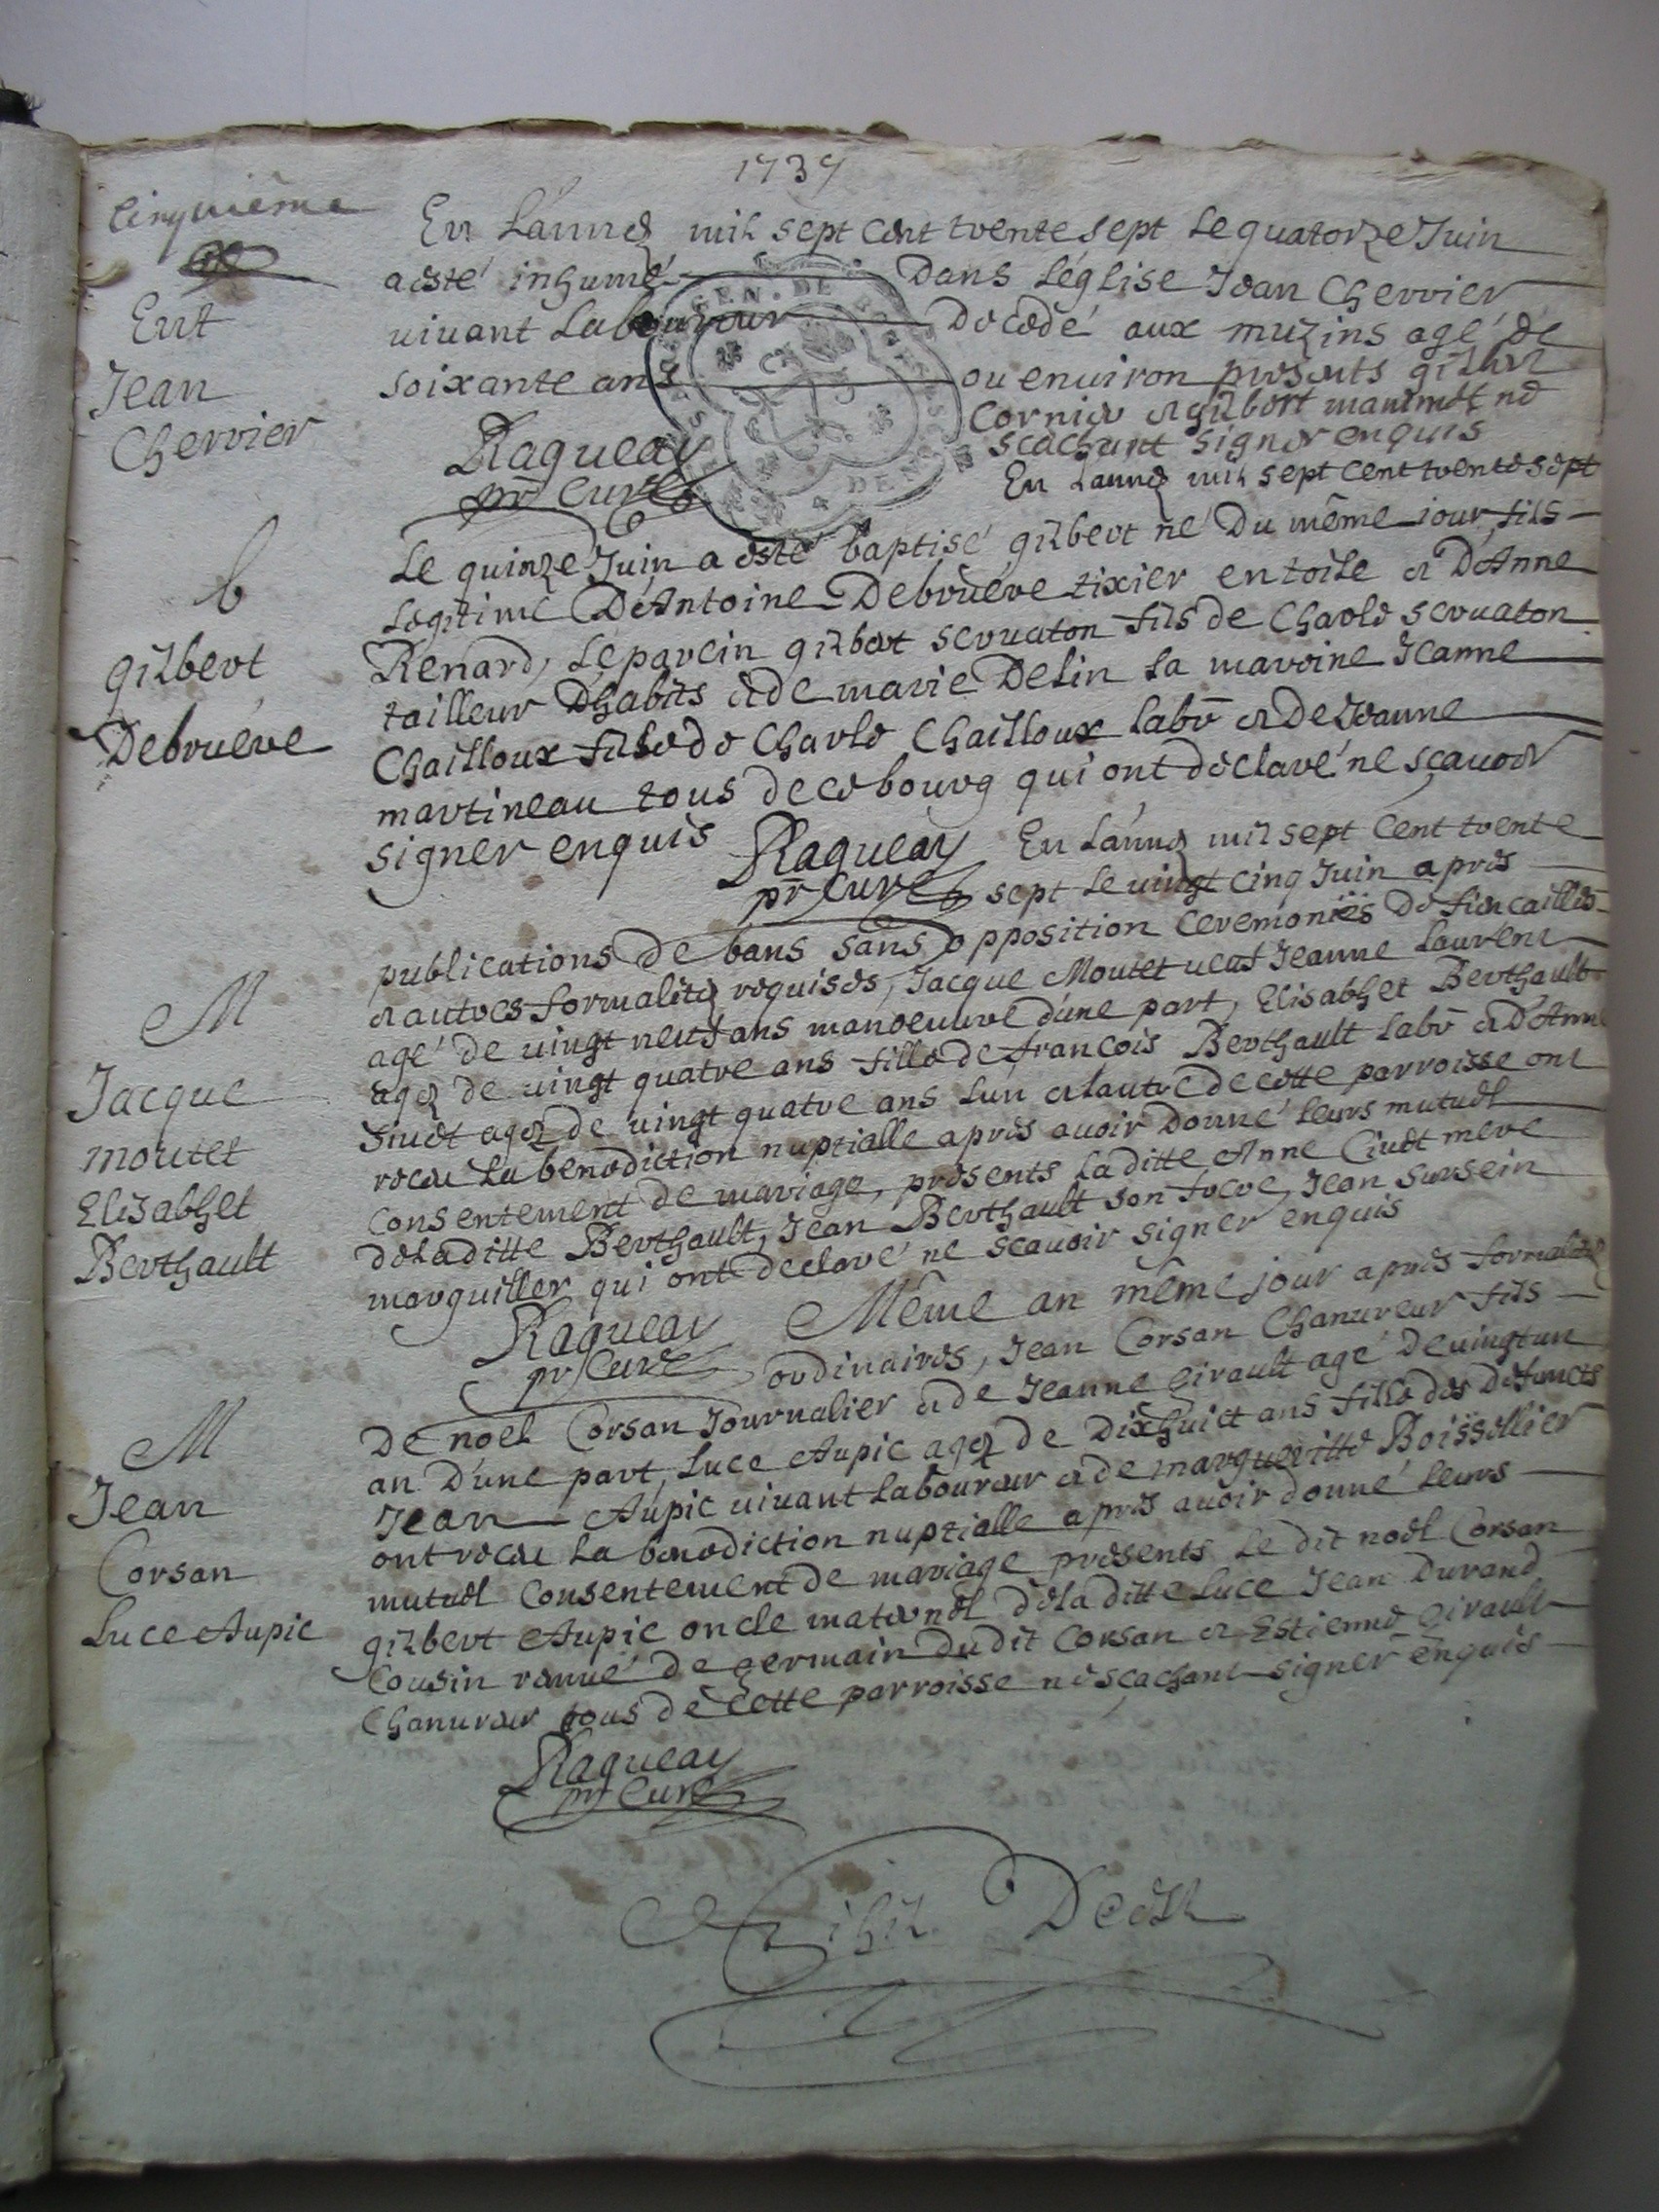 1737
cinquième
En Lannéé mil sept cent trente sept Le quatorze Juin
a esté inhumé dans Léglise Jean Chervier
vivant Laboureur Decedé aux muzins agé de
soixante ans ou environ presents gilbert
Cornier et gilbert manmet ne
scachant signer enquis
Ent
Jean
Chervier
Raqueau
pr Curé
GEN. DE
En Lannéé mil sept cent trente sept
Le quinze Juin a esté baptisé gilbert né Du même jour fils
Legitime D'Antoine Debrüere tixier en toile et D'Anne
Renard, Le parein gilbert servaton fils de Charle servaton
tailleur Dhabits et de marie Delin La maroine Jeanne
Chailloux fille de Charle Chailloux Labr et De Jeanne
martineau tous de ce bourg qui ont déclaré ne sçavoir
signer enquis
b
gilbert
Debruére
Raqueau
pr Curé
En Lannéé mil sept Cent trente
sept Le vingt cinq Juin après
publications de bans sans opposition Ceremoniës de fiancailles
et autres formalitéz requises, Jacque Moutet veuf Jeanne Laurent
agé de vingt neuf ans manoeuvre d'une part, Elisabhet Berthault
agéé de vingt quatre ans fille de francois Berthault Labr et d'Anne
Siuet agéé de vingt quatre ans Lun et Lautre de cette parroisse ont
receu La benediction nuptialle après avoir Donné Leurs mutuel
consentement de mariage, présents La ditte Anne Ciuet mere
de La ditte Berthault, Jean Berthault son frere, Jean sursein
marguiller qui ont declaré ne scavoir signer enquis
M
Jacque
moutet
Elisabhet
Berthault
Raqueau
pr Curé
Même an même jour après formalités
ordinaires, Jean Corsan Chanvreur fils
De noel Corsan Journalier et de Jeanne Girault agé de vingt un
an D'une part, Luce Aupic agéé de Dix huict ans fille des Defuncts
Jean Aupic vivant Laboureur et de margueritte Boissellier
ont receu La benediction nuptialle après avoir donné Leurs
mutuel Consentement de mariage présents Le dit noel Corsan
gilbert Aupic oncle maternel de La ditte Luce Jean Durand
Cousin remué de germain du dit Corsan et Estienne Girault
Chanvreur tous de Cette parroisse ne sçachant signer enquis
M
Jean
Corsan
Luce Aupic
Raqueau
pr Curé
Nihil Deest